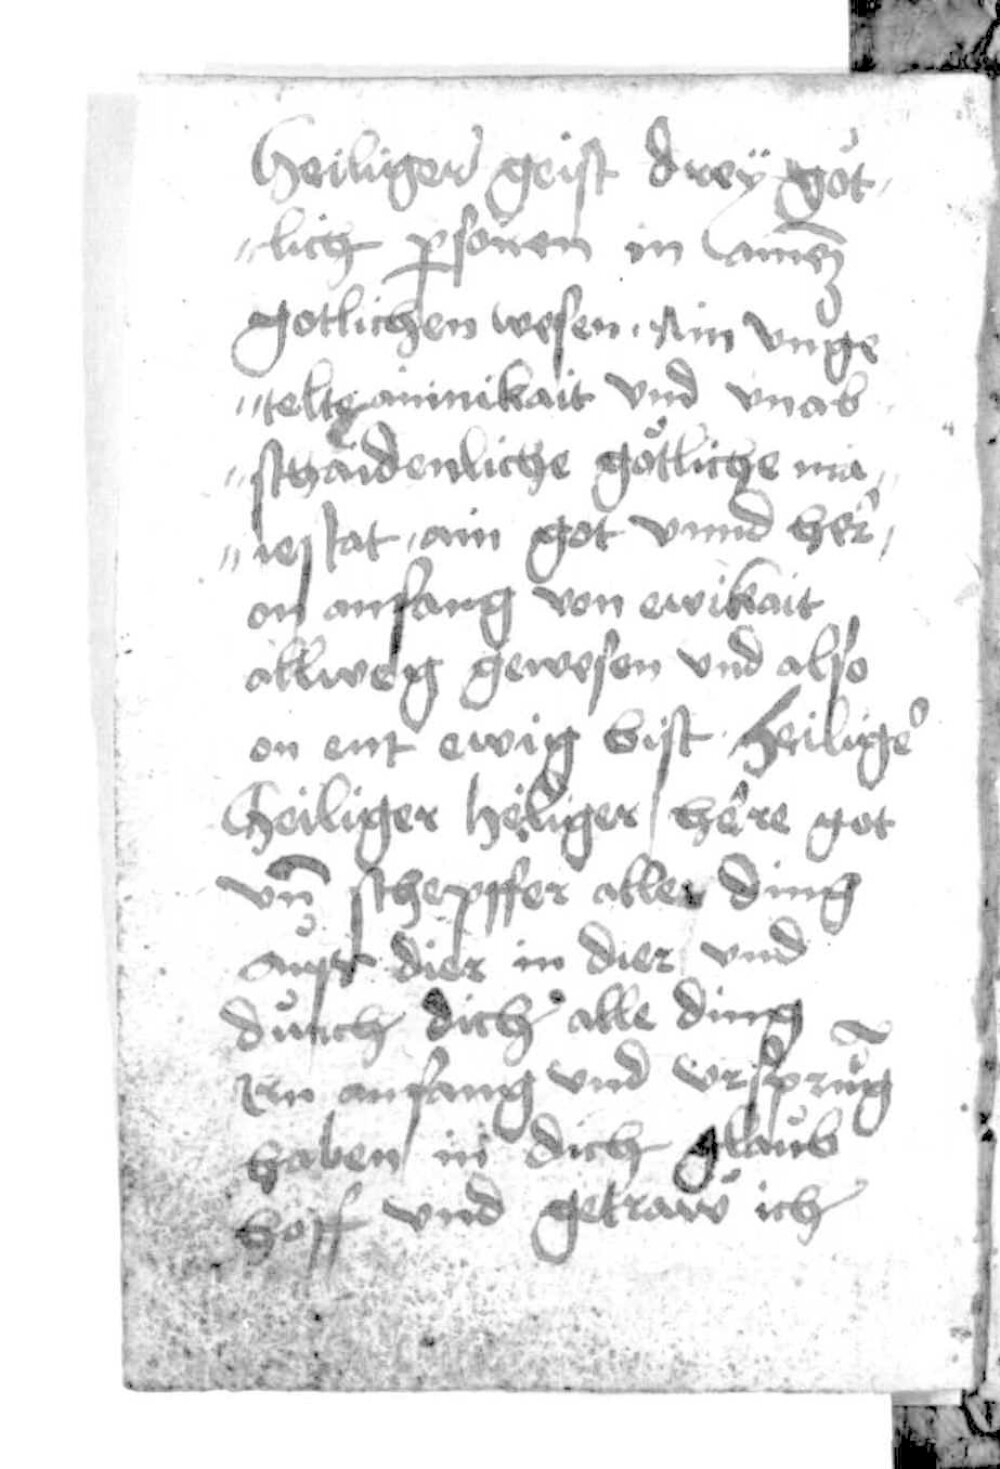 heiliger geist dreÿ göt„
„lich ꝑsonen in ainē
gotlichen wesen · Ain vnge
„telte ainnikait vnd vnab
„schaidenliche götliche ma„
„iestat · ain got vnnd her„
on anfang von ewikait
allweg gewesen vnd also
on ent ewig bist · heilige᷑
heiliger heiliger here got
vn̄ schepffer aller ding
auß dier in dier vnd
dűrch dich alle ding
ein anfang vnd vrsprűḡ
haben in dich glaűb
hoff vnd getraw ich